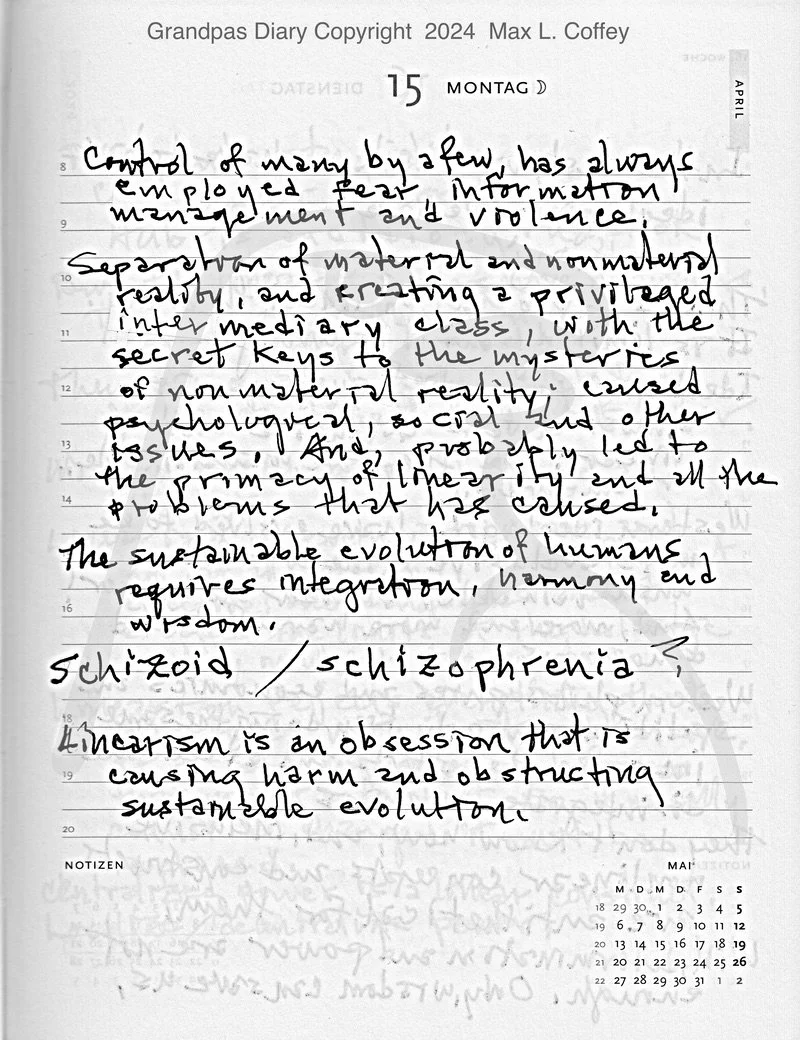 Grandpas Diary Copyright 2024 Max L. Coffey
15 MONTAG
APRIL
8 Control of many by a few, has always
employed fear, information
9 management and violence.
Separation of material and nonmaterial
10 reality, and creating a privilaged
11 intermediary class, with the
secret keys to the mysteries
12 of nonmaterial reality; caused
psychological, social and other
13 issues. And, probably led to
the primacy of linearity and all the
14 problems that has caused.
The sustainable evolution of humans
requires integration, harmony and
16 wisdom.
Schizoid / schizophrenia ?
18 Linearism is an obsession that is
19 causing harm and obstructing
sustainable evolution.
20
NOTIZEN
MAI
M D M D F S S
18 29 30 1 2 3 4 5
19 6 7 8 9 10 11 12
20 13 14 15 16 17 18 19
21 20 21 22 23 24 25 26
22 27 28 29 30 31 1 2